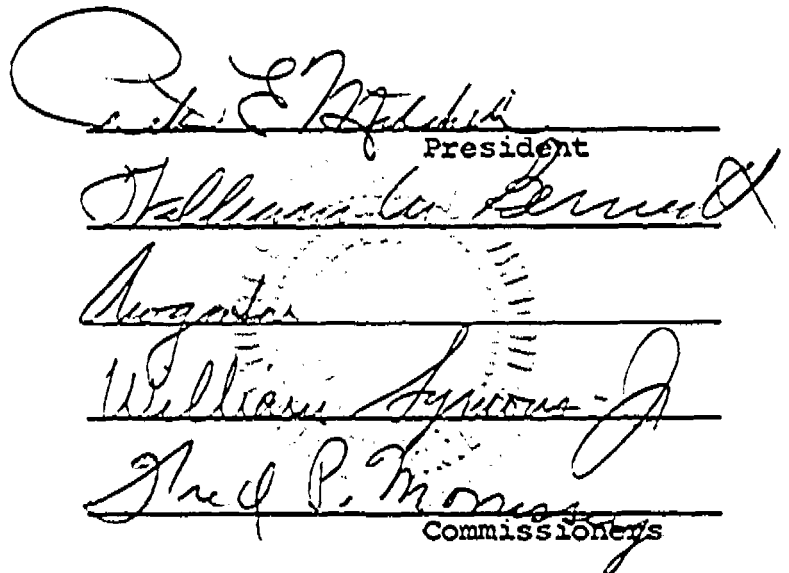 Peter E Mitchell
President
William M Bennett
William Symons - Jr
Fred P. Morrissey
Commissioners